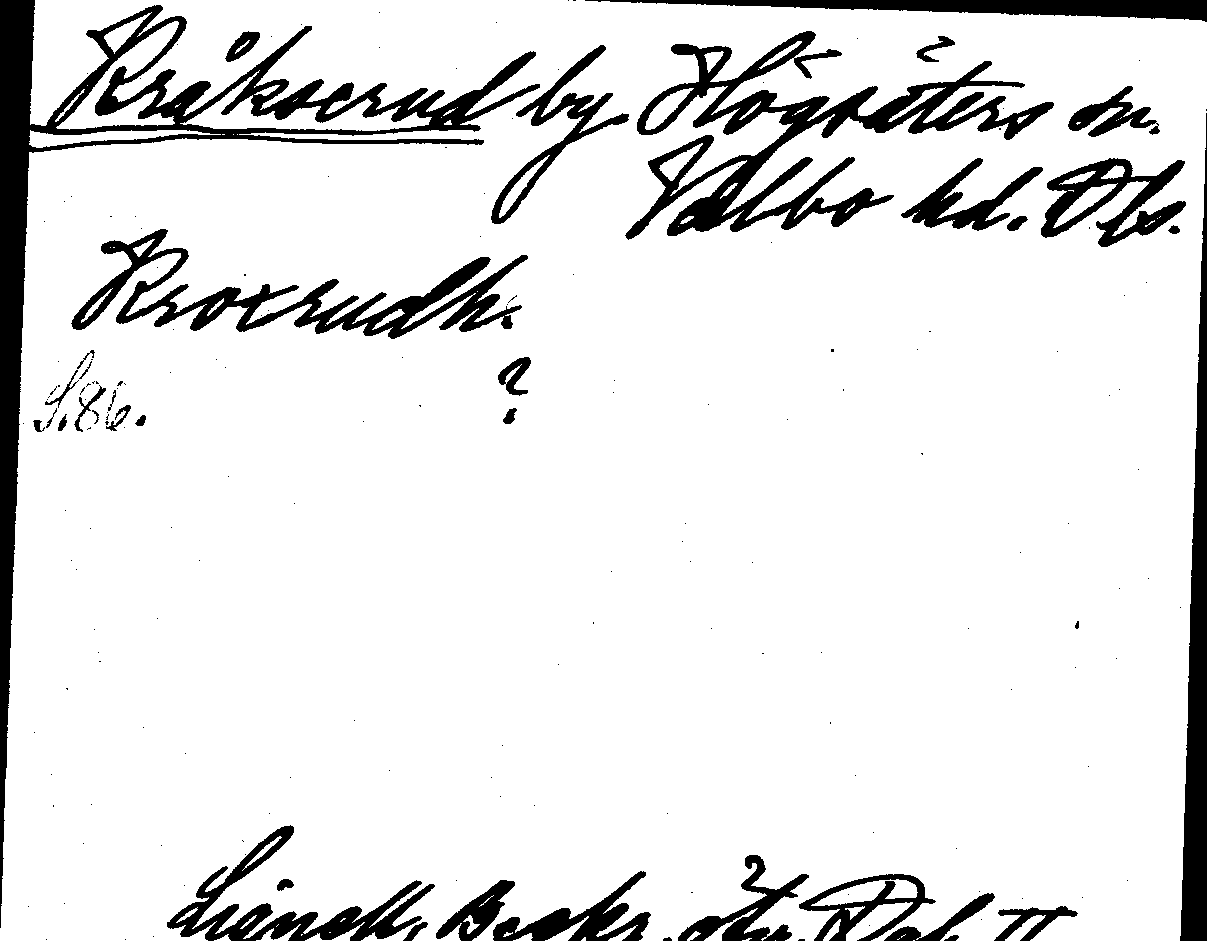 Kråkserud by. Högsäters sn.
Valbo hd. Dls.
Kroxrudh.
S. 86. ?
Lignell, Beskr. öfv. Dal. II